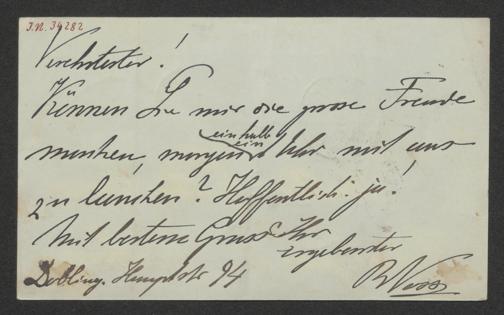 J.N. 34282
Verehrtester!
Können Sie mir die grosse Freude
machen, morgen einhalb ein Uhr mit uns
zu lunchen? Hoffentlich: ja!
Mit bestem Gruss Ihr
ergebenster
Döbling. Hauptstr 94
RVoss